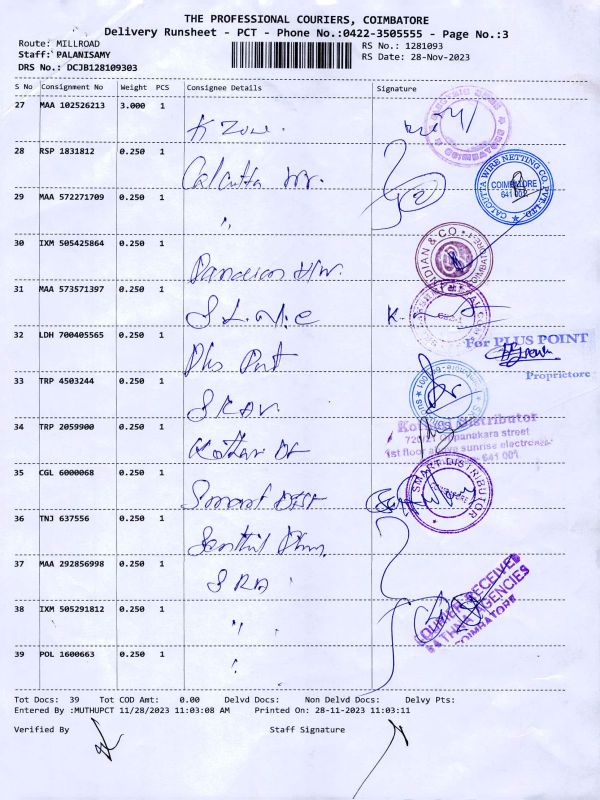 THE PROFESSIONAL COURIERS, COIMBATORE
Delivery Runsheet - PCT - Phone No.:0422-3505555 - Page No.:3
Route: MILLROAD
RS No.: 1281093
Staff: PALANISAMY
RS Date: 28-Nov-2023
DRS No.: DCJB128109303
S No Consignment No Weight PCS Consignee Details Signature
27 MAA 102526213 3.000 1
28 RSP 1831812 0.250 1 Calcutta
CALCUTTA WIRE NETTING CO. PVT. LTD
COIMBATORE
29 MAA 572271709 0.250 1 "
30 IXM 505425864 0.250 1
INDIAN & CO.
31 MAA 573571397 0.250 1
K.
32 LDH 700405565 0.250 1 Plus Point
For PLUS POINT
Proprietore
33 TRP 4503244 0.250 1
34 TRP 2059900 0.250 1 Kothari
Distributor
1st floor above sunrise electronics
641 001
35 CGL 6000068 0.250 1 Smart Dist
SMART DISTRIBUTOR
36 TNJ 637556 0.250 1 Senthil
37 MAA 292856998 0.250 1 SRA
COURIER RECEIVED
RATHNA AGENCIES
COIMBATORE
38 IXM 505291812 0.250 1 "
39 POL 1600663 0.250 1
Tot Docs: 39 Tot COD Amt: 0.00 Delvd Docs: Non Delvd Docs: Delvy Pts:
Entered By :MUTHUPCT 11/28/2023 11:03:08 AM Printed On: 28-11-2023 11:03:11
Verified By Staff Signature